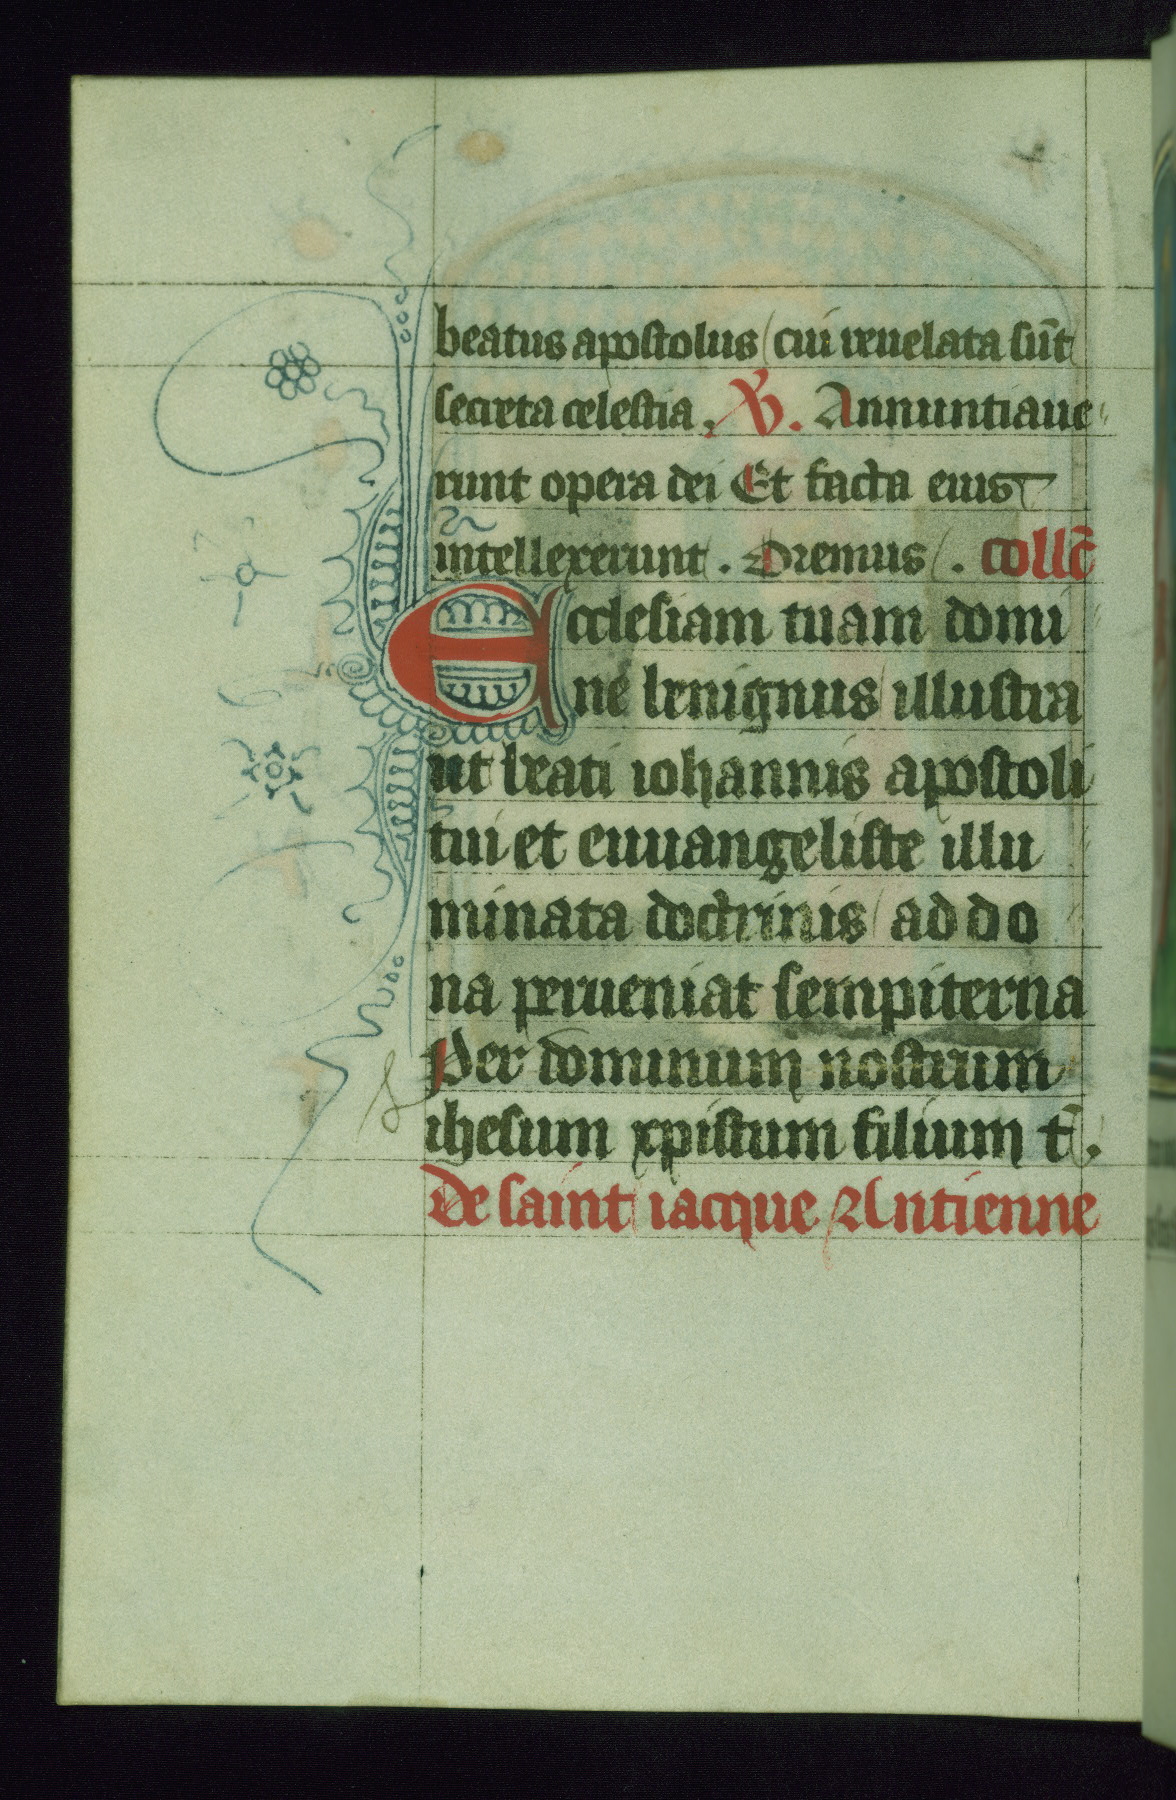 beatus apostolus cui reuelata sūt
secreta celestia. ℣. Annuntiaue
runt opera dei Et facta eius
intellexerunt. Oremus. Collc̄
Ecclesiam tuam domi
ne benignus illustra
ut beati iohannis apostoli
tui et euuangeliste illu
minata doctrinis ad do
na perueniat sempiterna
Per dominum nostrum
ihesum xpistum filium t̄.
De saint iacque Antienne